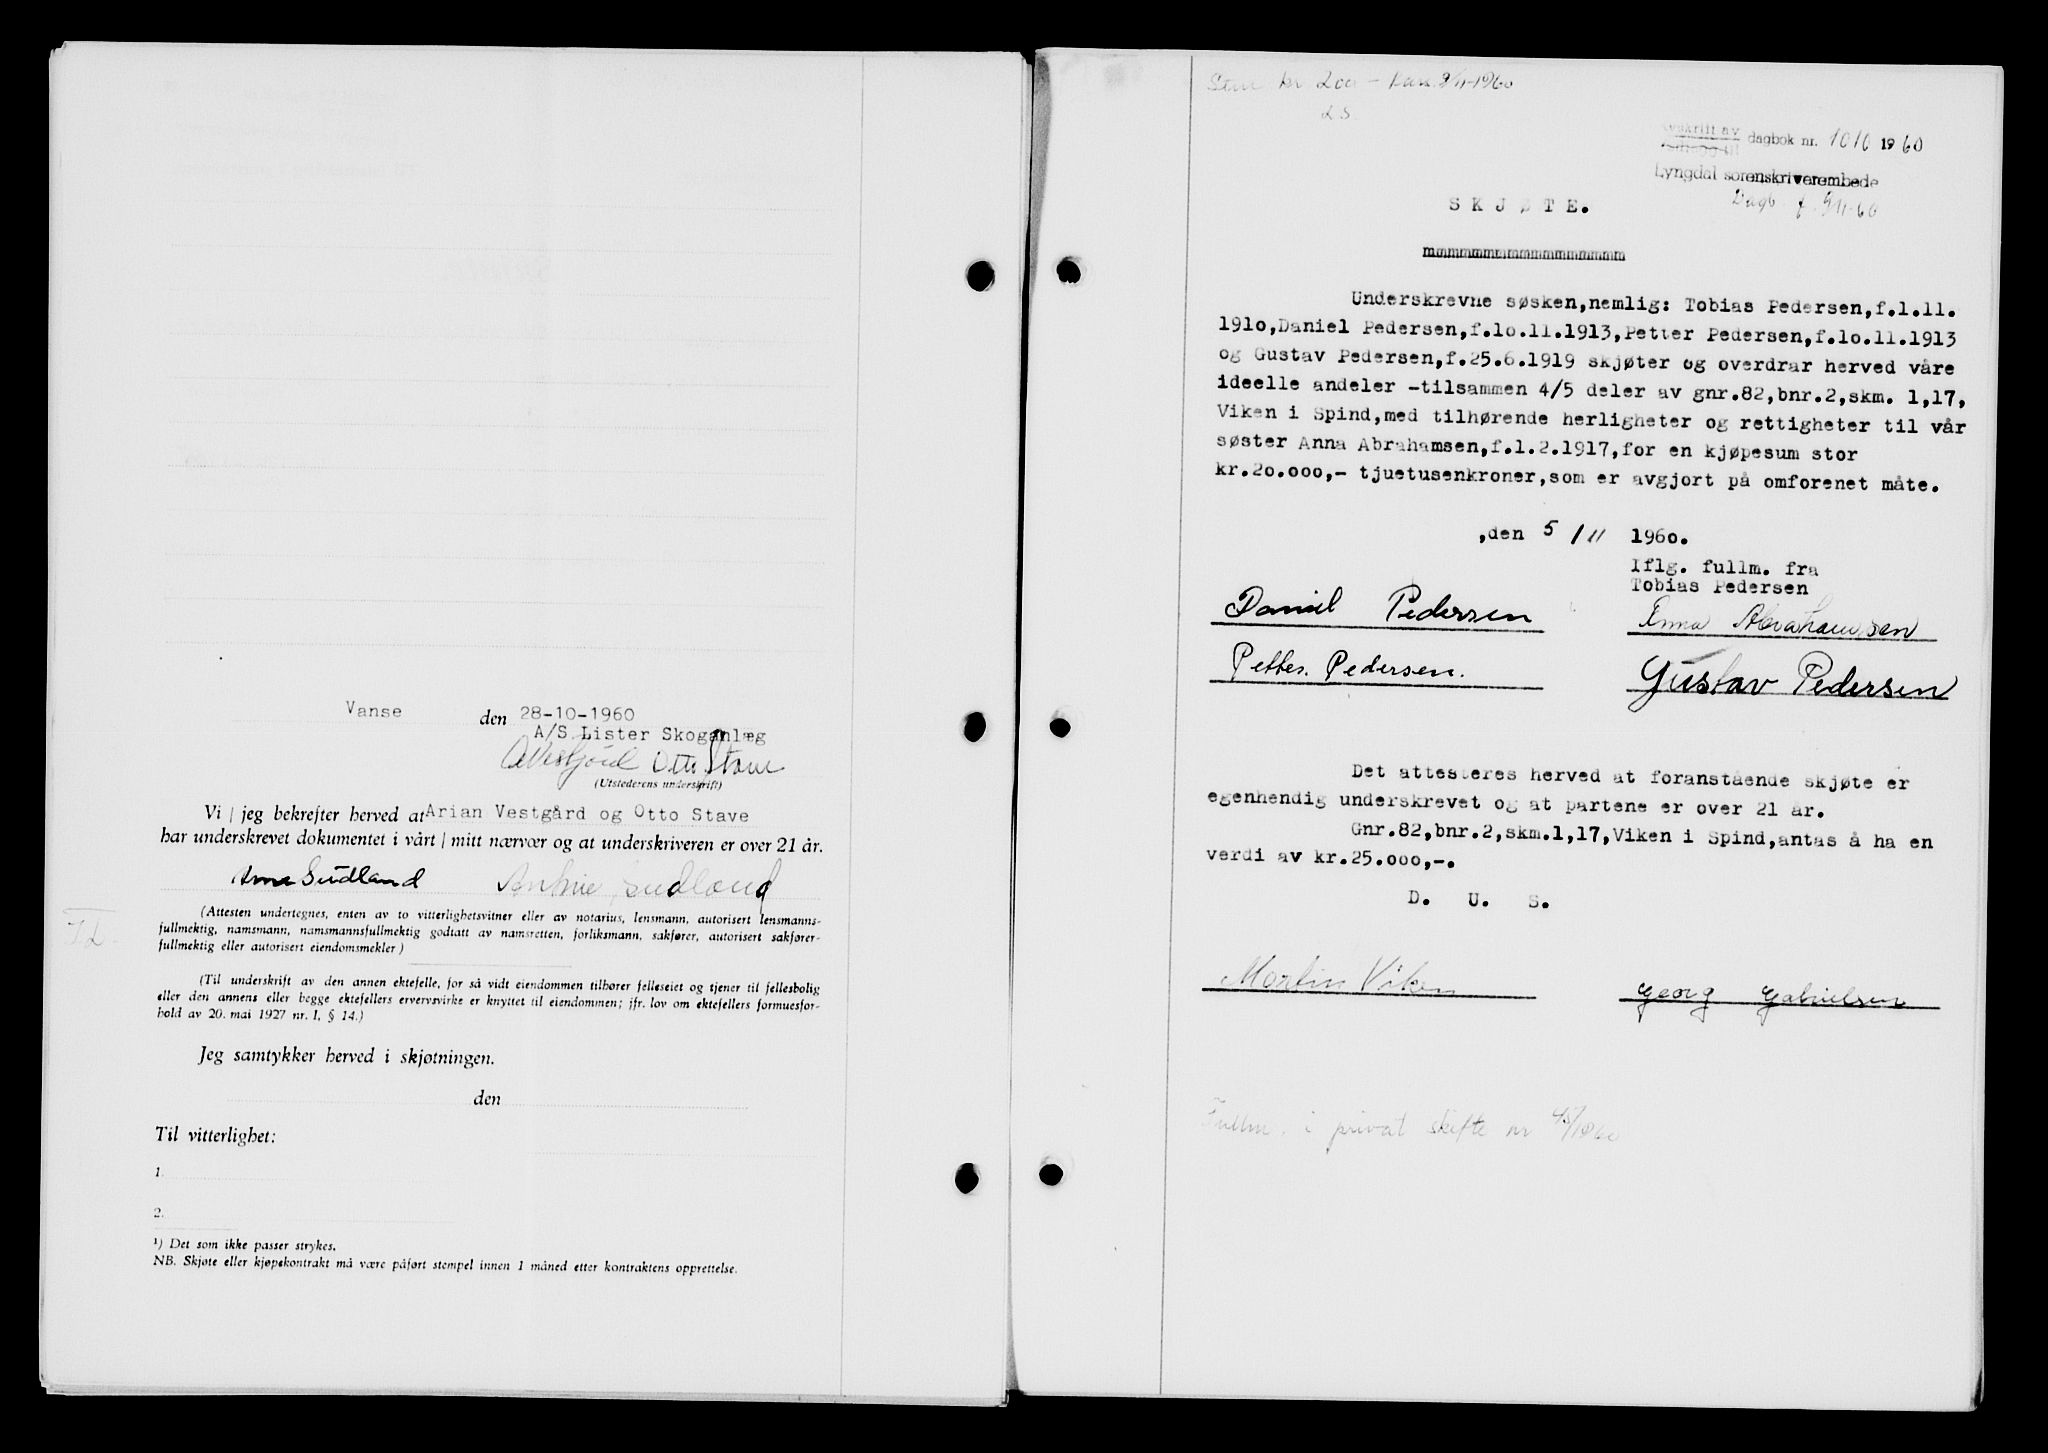 Vanse den 28-10-1960
A/S Lister Skoganlæg
Otto Stave
(Utstederens underskrift)
Vi / jeg bekrefter herved at Arian Vestgård og Otto Stave
har underskrevet dokumentet i vårt / mitt nærvær og at underskriveren er over 21 år.
Arne Sudland Sudland
(Attesten undertegnes, enten av to vitterlighetsvitner eller av notarius, lensmann, autorisert lensmanns-
fullmektig, namsmann, namsmannsfullmektig godtatt av namsretten, forliksmann, sakfører, autorisert sakfører-
fullmektig eller autorisert eiendomsmekler)
(Til underskrift av den annen ektefelle, for så vidt eiendommen tilhører felleseiet og tjener til fellesbolig
eller den annens eller begge ektefellers ervervsvirke er knyttet til eiendommen; jfr. lov om ektefellers formuesfor-
hold av 20. mai 1927 nr. 1, § 14.)
Jeg samtykker herved i skjøtningen.
den
Til vitterlighet:
1.
2.
¹) Det som ikke passer strykes.
NB. Skjøte eller kjøpekontrakt må være påført stempel innen 1 måned etter kontraktens opprettelse.
kr 200 - 9/11-1960
L S.
Avskrift av dagbok nr. 1010 1960
Lyngdal sorenskriverembede
Dagb. f. 9/11-60
SKJØTE.
Underskrevne søsken,nemlig: Tobias Pedersen,f.1.11.
1910,Daniel Pedersen,f.10.11.1913,Petter Pedersen,f.10.11.1913
og Gustav Pedersen,f.25.6.1919 skjøter og overdrar herved våre
ideelle andeler -tilsammen 4/5 deler av gnr.82,bnr.2,skm. 1,17,
Viken i Spind,med tilhørende herligheter og rettigheter til vår
søster Anna Abrahamsen,f.1.2.1917,for en kjøpesum stor
kr.20.000,- tjuetusenkroner,som er avgjort på omforenet måte.
,den 5/11 1960.
Iflg. fullm. fra
Tobias Pedersen
Daniel Pedersen Anna Abrahamsen
Petter Pedersen. Gustav Pedersen
Det attesteres herved at foranstående skjøte er
egenhendig underskrevet og at partene er over 21 år.
Gnr.82,bnr.2,skm.1,17,Viken i Spind,antas å ha en
verdi av kr.25.000,-.
D. U. S.
Martin Viken Georg Gabrielsen
Fullm. i privat skifte nr 45/1960